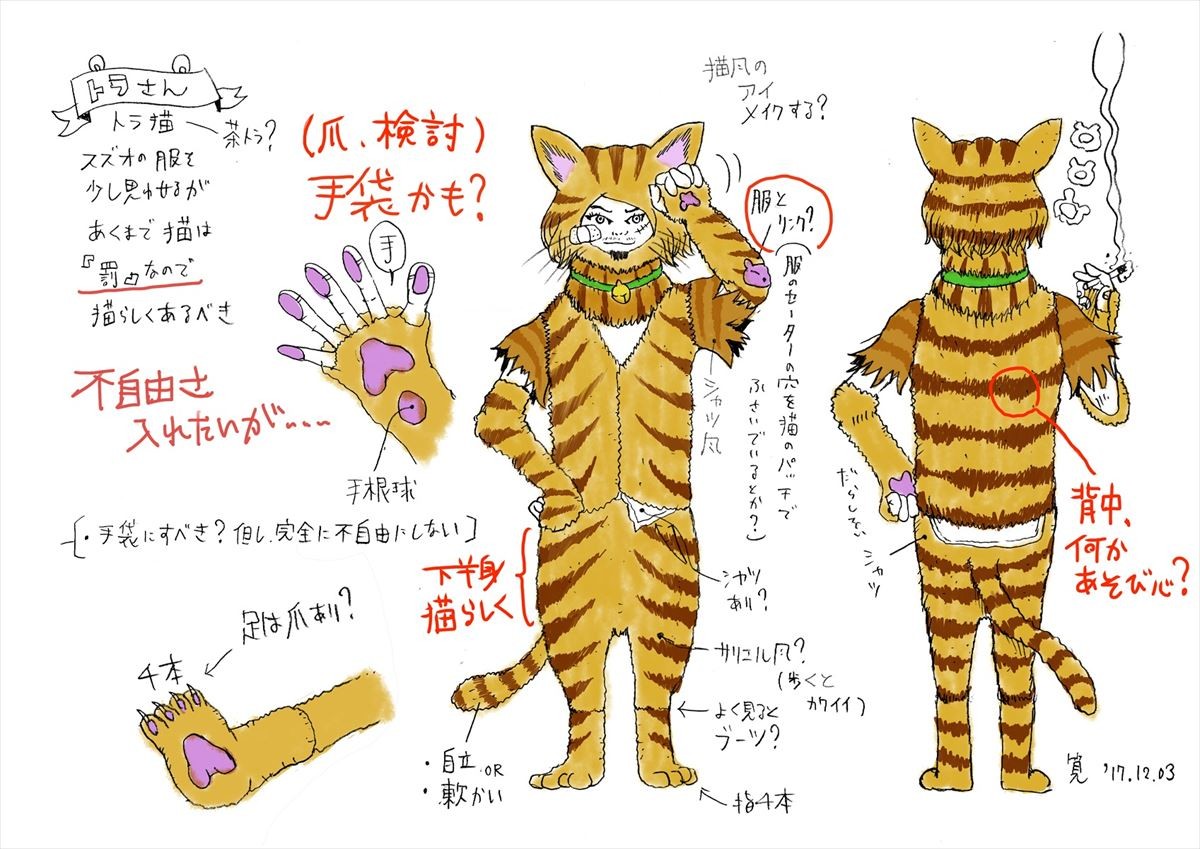 トラさん
トラ猫
茶トラ?
スズオの服を
少し思わせるが
あくまで猫は
『罰』なので
猫らしくあるべき
不自由さ
入れたいが・・・・
(爪、検討)
手袋かも?
手
手根球
[・手袋にすべき?但し、完全に不自由にしない]
足は爪あり?
4本
猫風の
アイ
メイクする?
服と
リンク?
(服のセーターの穴を猫のパッチで
ふさいでいるとか?)
シャツ風
下半身
猫らしく
シャツ
あり?
サリエル風?
(歩くと
カワイイ)
よく見ると
ブーツ?
・自立 OR
・軟かい
指4本
だらしない
シャツ
背中、
何か
あそび心?
寛 '17.12.03